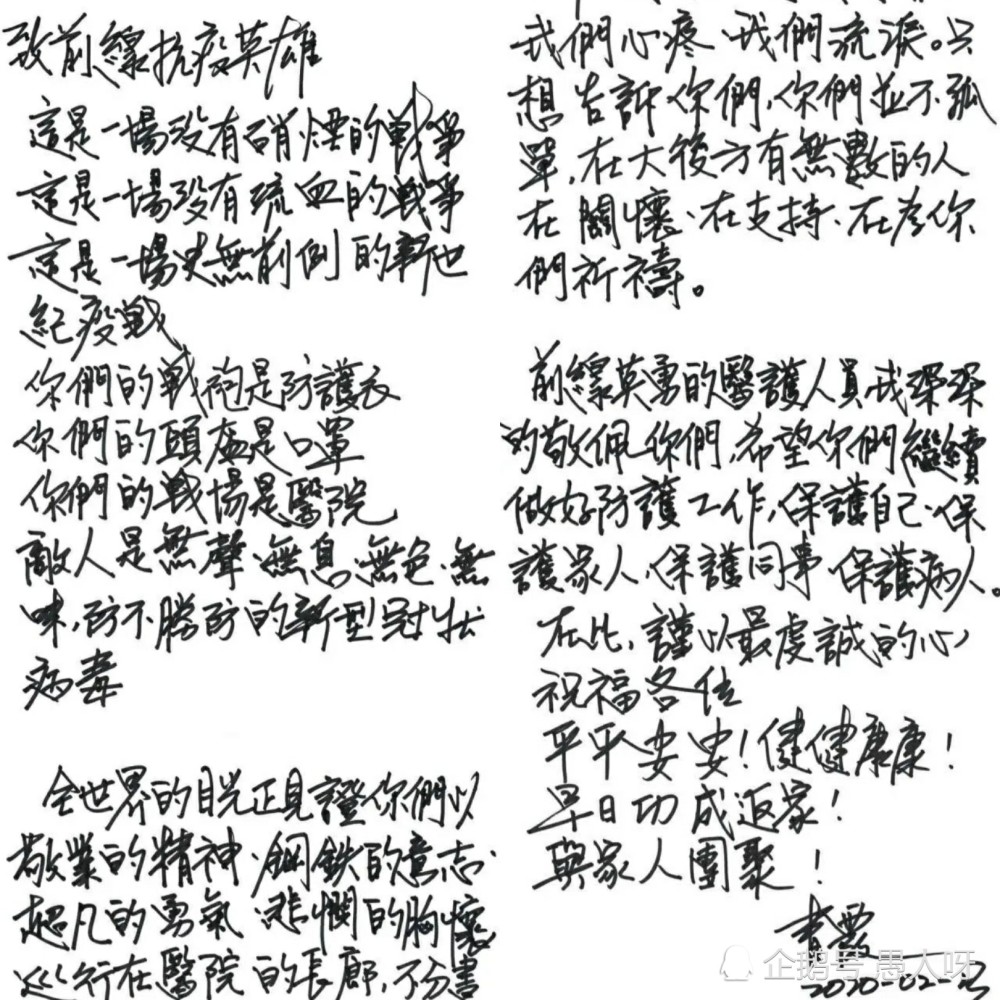 致前線抗疫英雄
這是一場没有硝煙的戰爭
這是一場没有疏血的戰爭
這是一場史無前例的新世
紀疫戰、
你們的戰袍是防護衣
你們的頭盔是口罩
你們的戰場是醫院
敵人是無聲、無息、無色、無
味,防不勝防的新型冠狀
病毒
全世界的目光正見證你們以
敬業的精神、鋼鉄的意志、
超凡的勇氣、悲憫的胸懷
巡行在醫院的長廊,不分晝
我們心疼、我們流淚。只
想告訴你們,你們並不孤
單,在大後方有無數的人
在關懷、在支持、在為你
們祈禱。
前線英勇的醫護人員,我深深
的敬佩你們,希望你們繼續
做好防護工作,保護自己、保
護家人、保護同事、保護病人。
在此,謹以最虔誠的心
祝福各位
平平安安!健健康康!
早日功成返家!
與家人團聚!
青霞
2020-02-
企鹅号 愚人呀